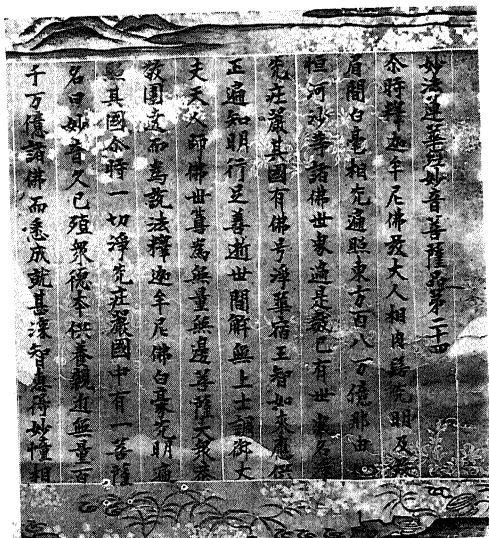 妙法蓮華經妙音菩薩品第二十四
尒時釋迦牟尼佛放大人相肉髻光明及放
眉間白毫相光遍照東方百八万億那由他
恒河沙等諸佛世界過是數已有世界名淨
光莊嚴其國有佛号淨華宿王智如來應供
正遍知明行足善逝世間解無上士調御丈
夫天人師佛世尊為無量無邊菩薩大衆恭
敬圍遶而為說法釋迦牟尼佛白毫光明遍
照其國尒時一切淨光莊嚴國中有一菩薩
名曰妙音久已殖衆德本供養親近無量百
千万億諸佛而悉成就甚深智慧得妙幢相